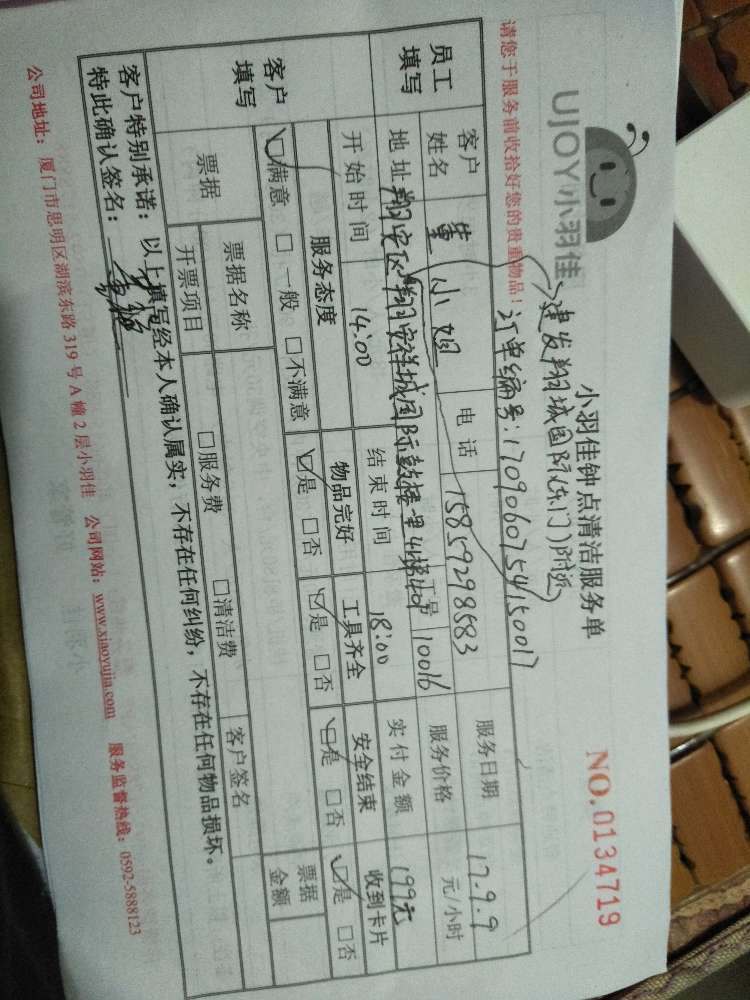 UJOY小羽佳
小羽佳钟点清洁服务单
NO.0134719
建发翔城国际(东门)附近
请您于服务前收拾好您的贵重物品!
订单编号:1709060754150017
员工填写
客户姓名 董小姐 电话 15859298583 服务日期 17.9.9
地址 翔安区翔安祥城国际 工号 10016 服务价格 元/小时
开始时间 14:00 结束时间 18:00 实付金额 199元
客户填写
服务态度 物品完好 工具齐全 安全结束 收到卡片
☑满意 □一般 □不满意 ☑是 □否 ☑是 □否 ☑是 □否 ☑是 □否
票据 票据名称 客户签名 票据金额
开票项目 □服务费 □清洁费
客户特别承诺:以上填写经本人确认属实,不存在任何纠纷,不存在任何物品损坏。
特此确认签名:
公司地址:厦门市思明区湖滨东路319号A幢2层小羽佳 公司网站:www.xiaoyujia.com 服务监督热线:0592-5888123